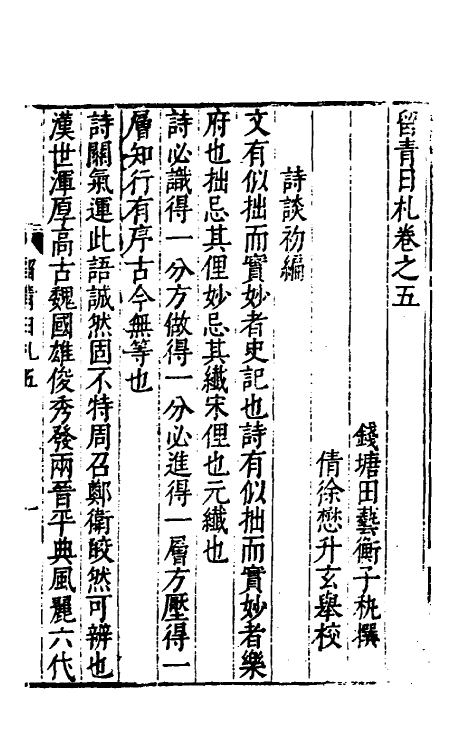 留青日札卷之五
錢塘田藝衡子秇撰
倩徐懋升玄舉校
詩談初編
文有似拙而實妙者史記也詩有似拙而實妙者樂
府也拙忌其俚妙忌其纎宋俚也元纎也
詩必識得一分方做得一分必進得一層方壓得一
層知行有序古今無等也
詩關氣運此語誠然固不特周召鄭衛皎然可辨也
漢世渾厚高古魏國雄俊秀發兩晉平典風麗六代
留青日札五
一